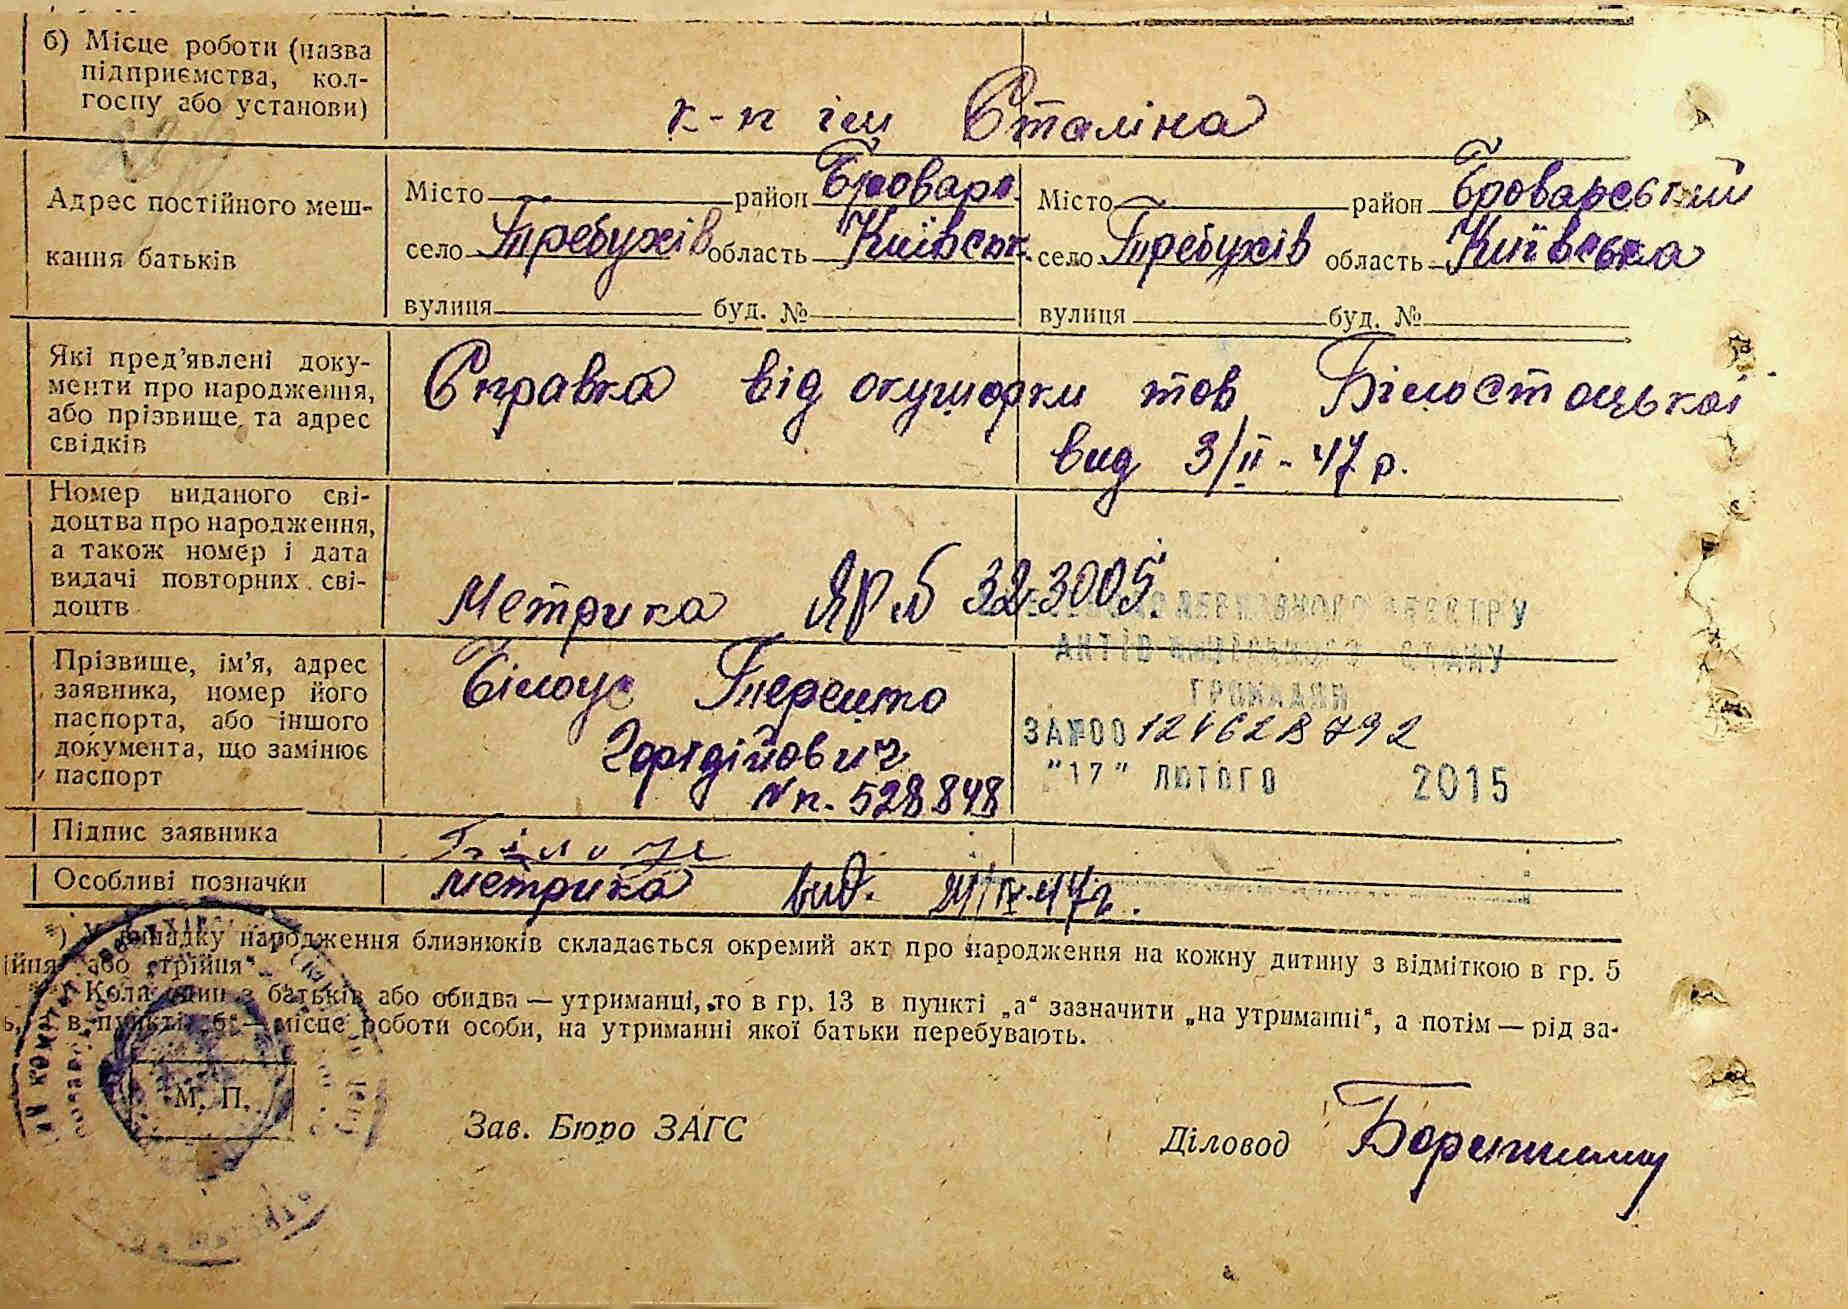 б) Місце роботи (назва
підприємства, кол-
госпу або установи)
к-п ім Сталіна
Адрес постійного меш-
кання батьків
Місто район Броварс.
село Требухів область Київськ.
вулиця буд. №
Місто район Броварський
село Требухів область Київська
вулиця буд. №
Які пред'явлені доку-
менти про народження,
або прізвище та адрес
свідків
Справка від окушорки тов Білостоцької
вид 3/ІІ-47 р.
Номер виданого сві-
доцтва про народження,
а також номер і дата
видачі повторних сві-
доцтв
Метрика ЯР № 323005.
ДЕРЖАВНОГО РЕЄСТРУ
АКТІВ ЦИВІЛЬНОГО СТАНУ
ГРОМАДЯН
ЗА №00124628792
"17" ЛЮТОГО 2015
Прізвище, ім'я, адрес
заявника, номер його
паспорта, або іншого
документа, що замінює
паспорт
Білоус
Гордійович
№ п. 528848
Підпис заявника
Білоус
Особливі позначки
Метрика вид.
*) У випадку народження близнюків складається окремий акт про народження на кожну дитину з відміткою в гр. 5
ійня" або „трійня".
Коли один з батьків або обидва — утриманці, то в гр. 13 в пункті „а" зазначити „на утриманні", а потім — рід за-
в пункті „б" — місце роботи особи, на утриманні якої батьки перебувають.
М. П.
Зав. Бюро ЗАГС
Діловод